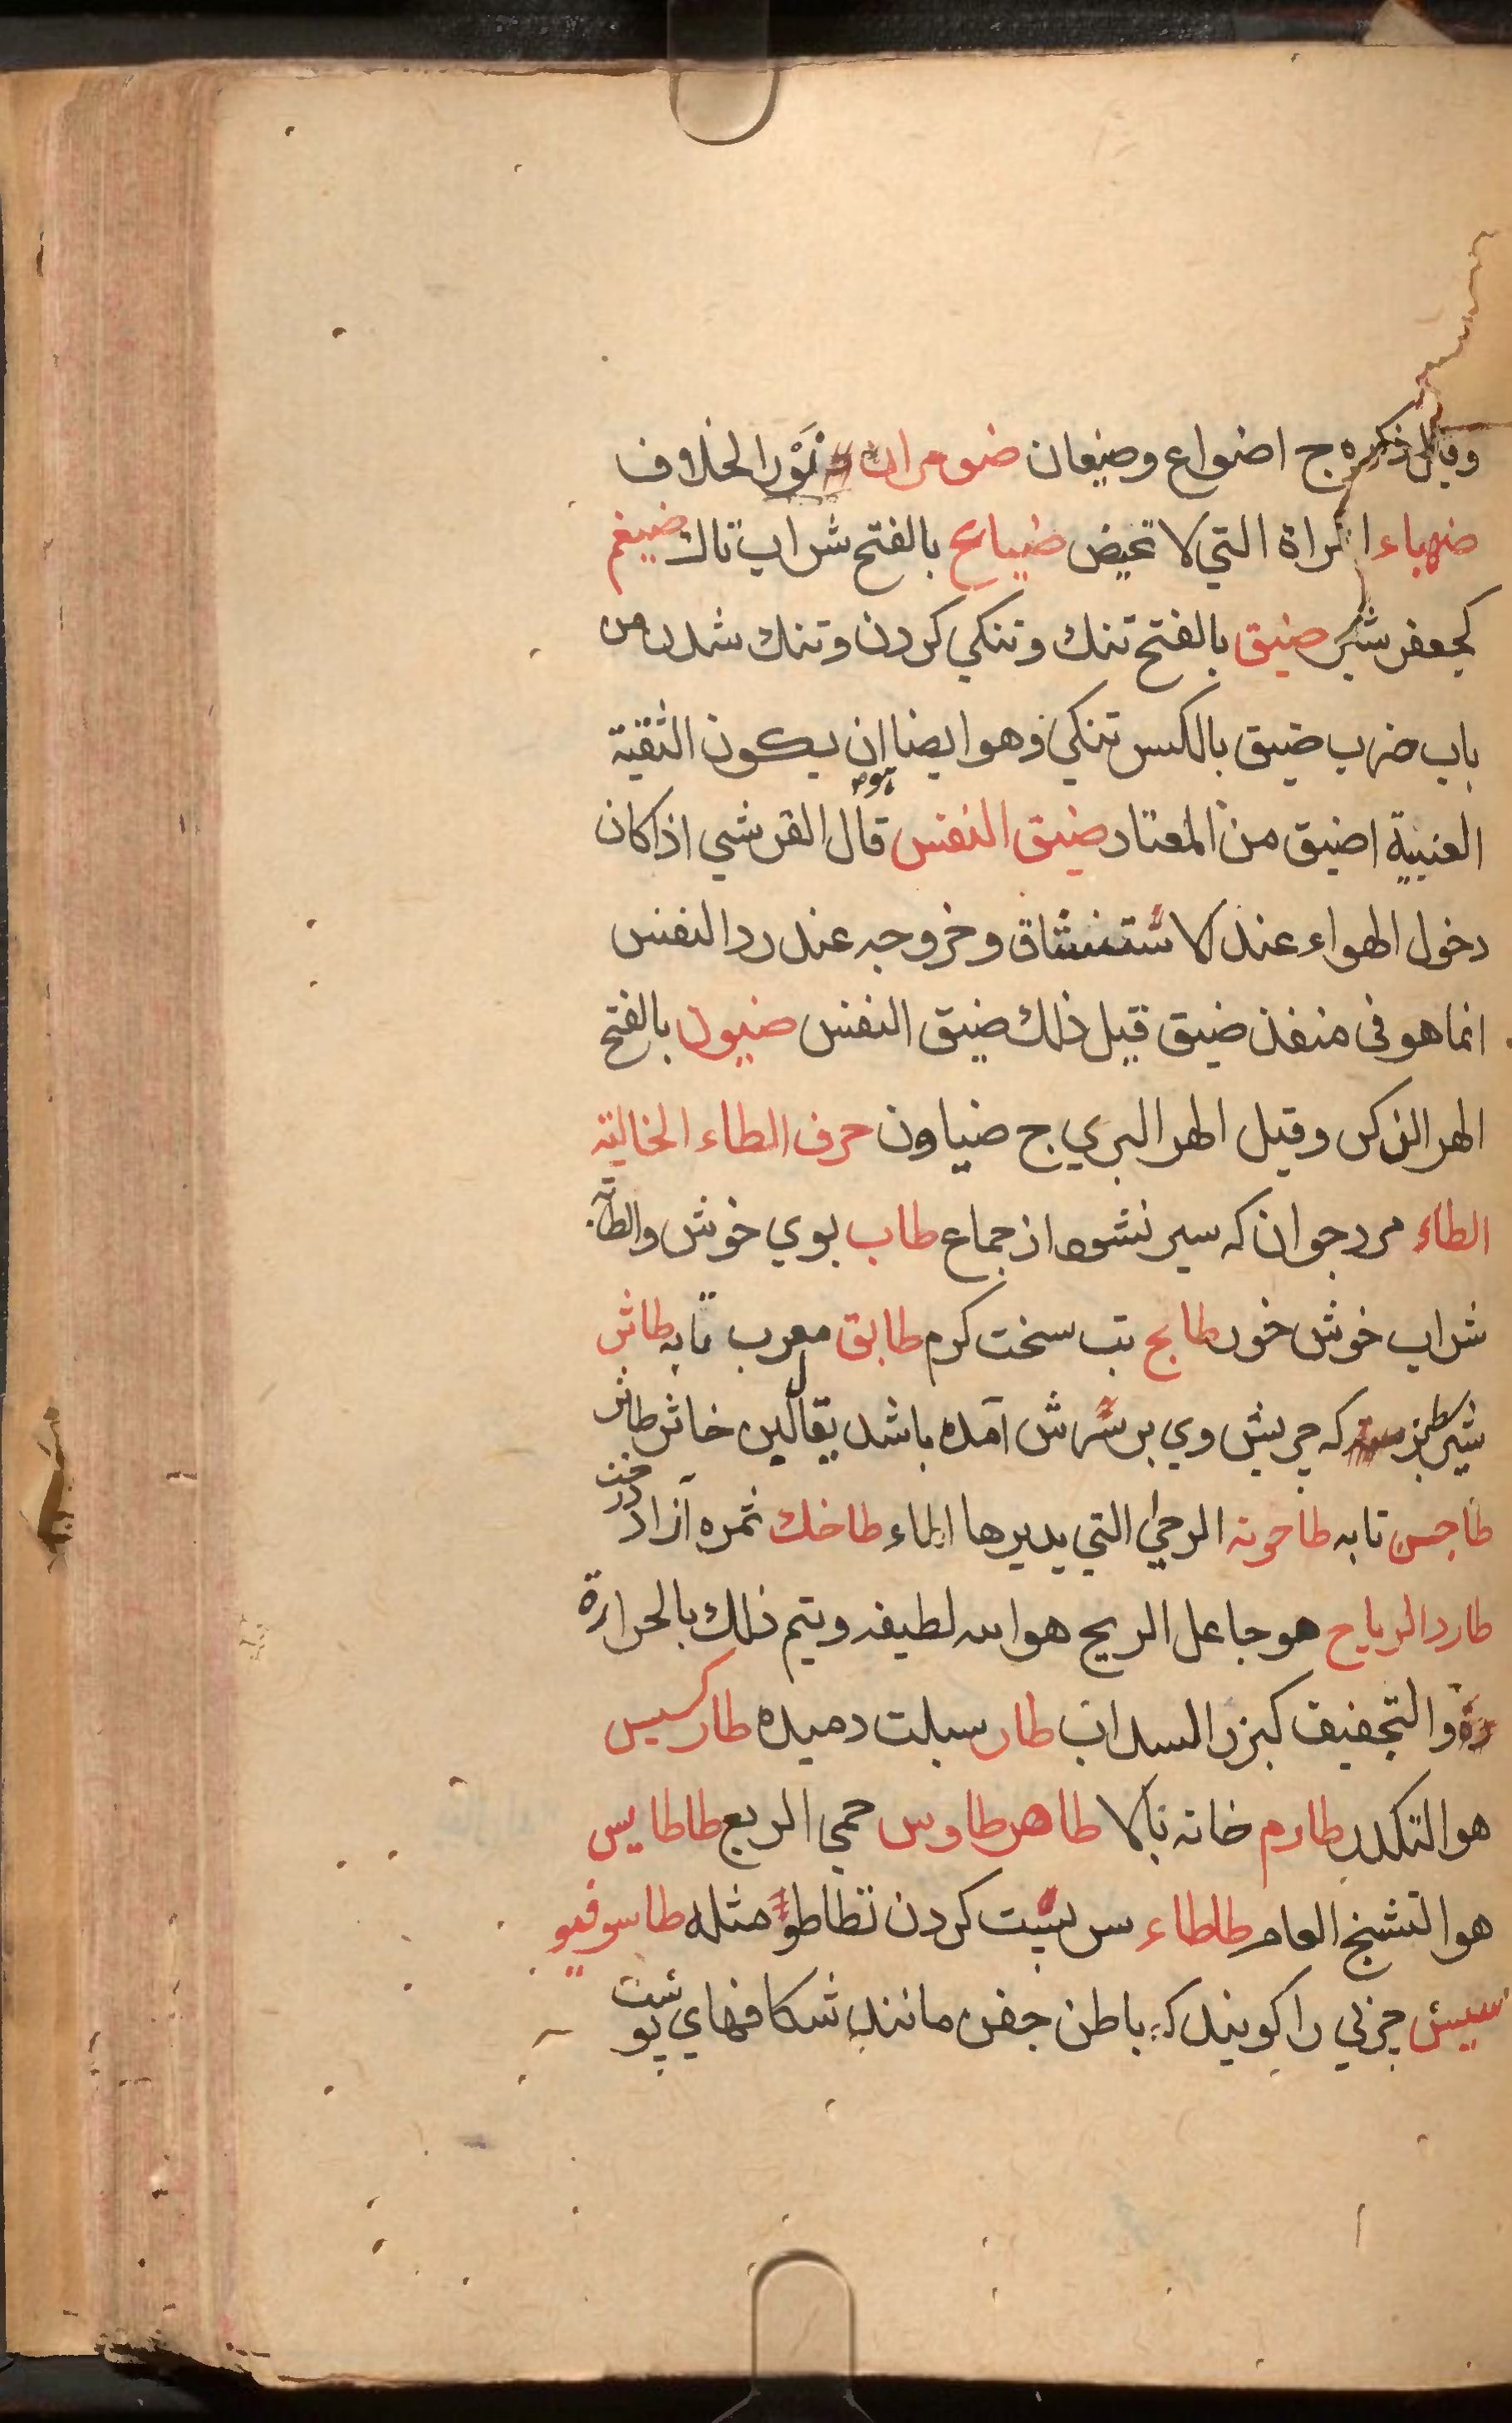 وقيل ذكره ج اضواع وضيعان ضومران نَوْر الخلاف
ضهياء المراة التي لا تحيض ضياح بالفتح شراب تنك ضيغم
كجعفر شير ضيق بالفتح تنك وتنكي كردن وتنك شدن من
باب ضرب ضيق بالكسر تنكي وهو ايضا ان يكون الثقبة
العنبية اضيق من المعتاد ضيق النفس قال القرشي اذا كان
دخول الهواء عند الاستنشاق وخروجه عند رد النفس
انما هو في منفذ ضيق قيل ذلك ضيق النفس ضيون بالفتح
الهر الذكر وقيل الهر البري ج ضياون حرف الطاء الخالية
الطاء مرد جوان كه سير نشود از جماع طاب بوي خوش والطابة
شراب خوش خور طابخ تب سخت كرم طابق معرب تابه طاثر
شير سطبر كه چربش وي بر سرش آمده باشد يقال لبن خاثر طاثر
طاجن تابه طاحونه الرحي التي يديرها الماء طاخك ثمره آزاد درخت
طارد الرياح هو جاعل الريح هوائيه لطيفه ويتم ذلك بالحرارة
والتجفيف كبزر السداب طار سبلت دميده طاركسيس
هو التكدر طارم خانه بالا طاهر طاوس حمي الربع طاطايس
هو التشنج العام طاطاء سر پست كردن تطاطؤ مثله طاسوفيو
سيس چزي را كويند كه باطن جفن مانند شكافهاي پوست